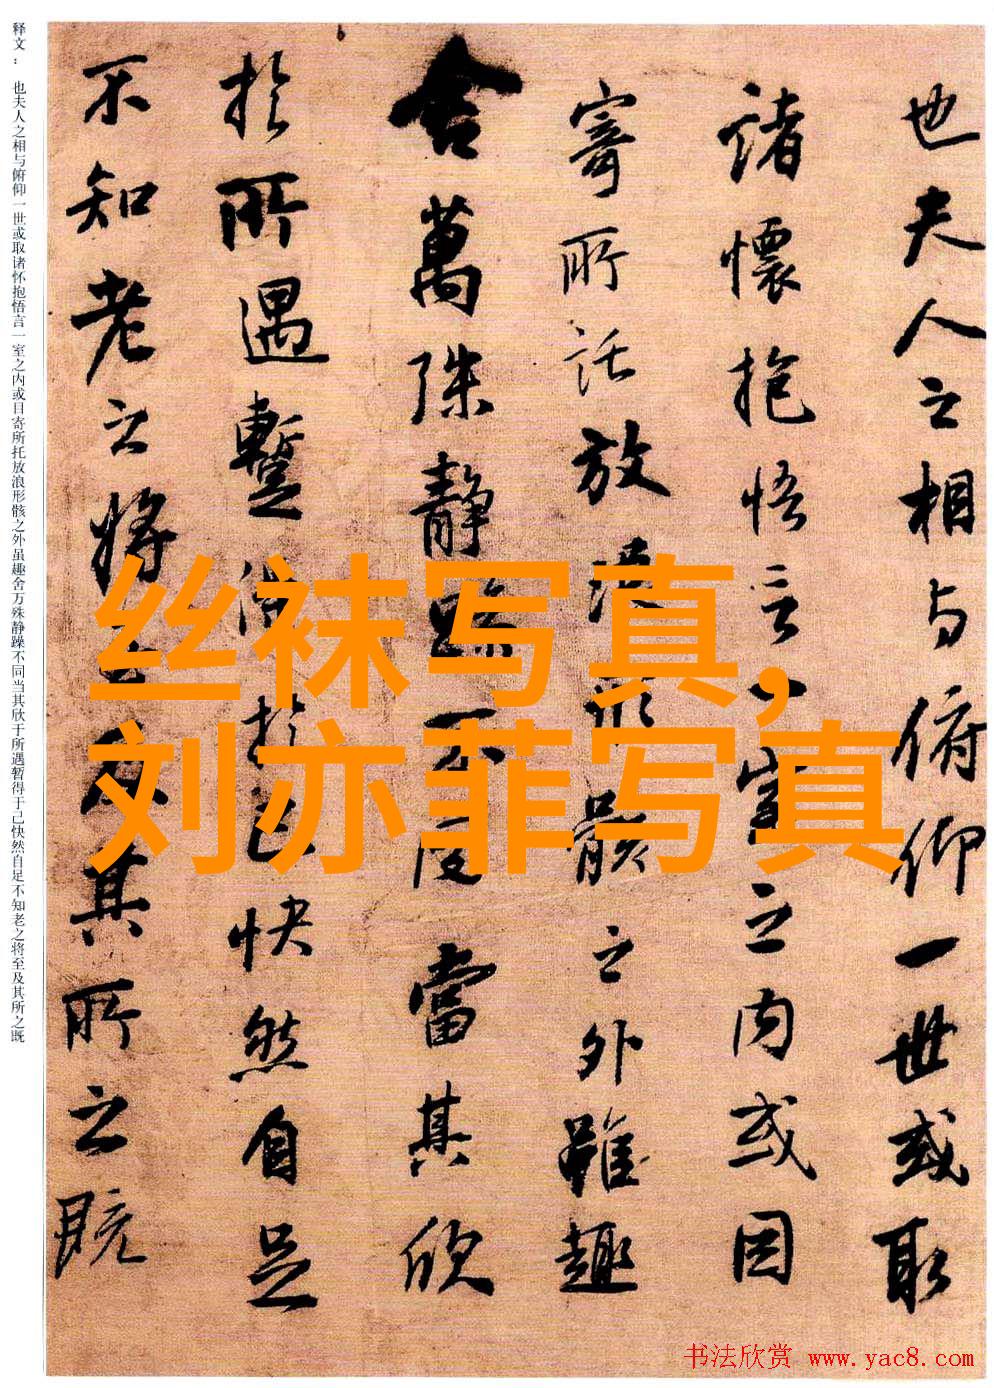 也夫人之相与俯仰一世或取
諸懷抱悟言一室之内或因
寄所託放浪形骸之外雖趣
舍萬殊静躁不同當其欣
於所遇蹔得於己快然自足
不知老之將至及其所之既
释文： 也夫人之相与俯仰一世或取诸怀抱悟言一室之内或目寄所托放浪形骸之外虽趣舍万殊静躁不同当其欣于所遇暂得于己快然自足不知老之将至及其所之既
丝袜写真,
刘亦菲写真
书法欣赏 www.yac8.com